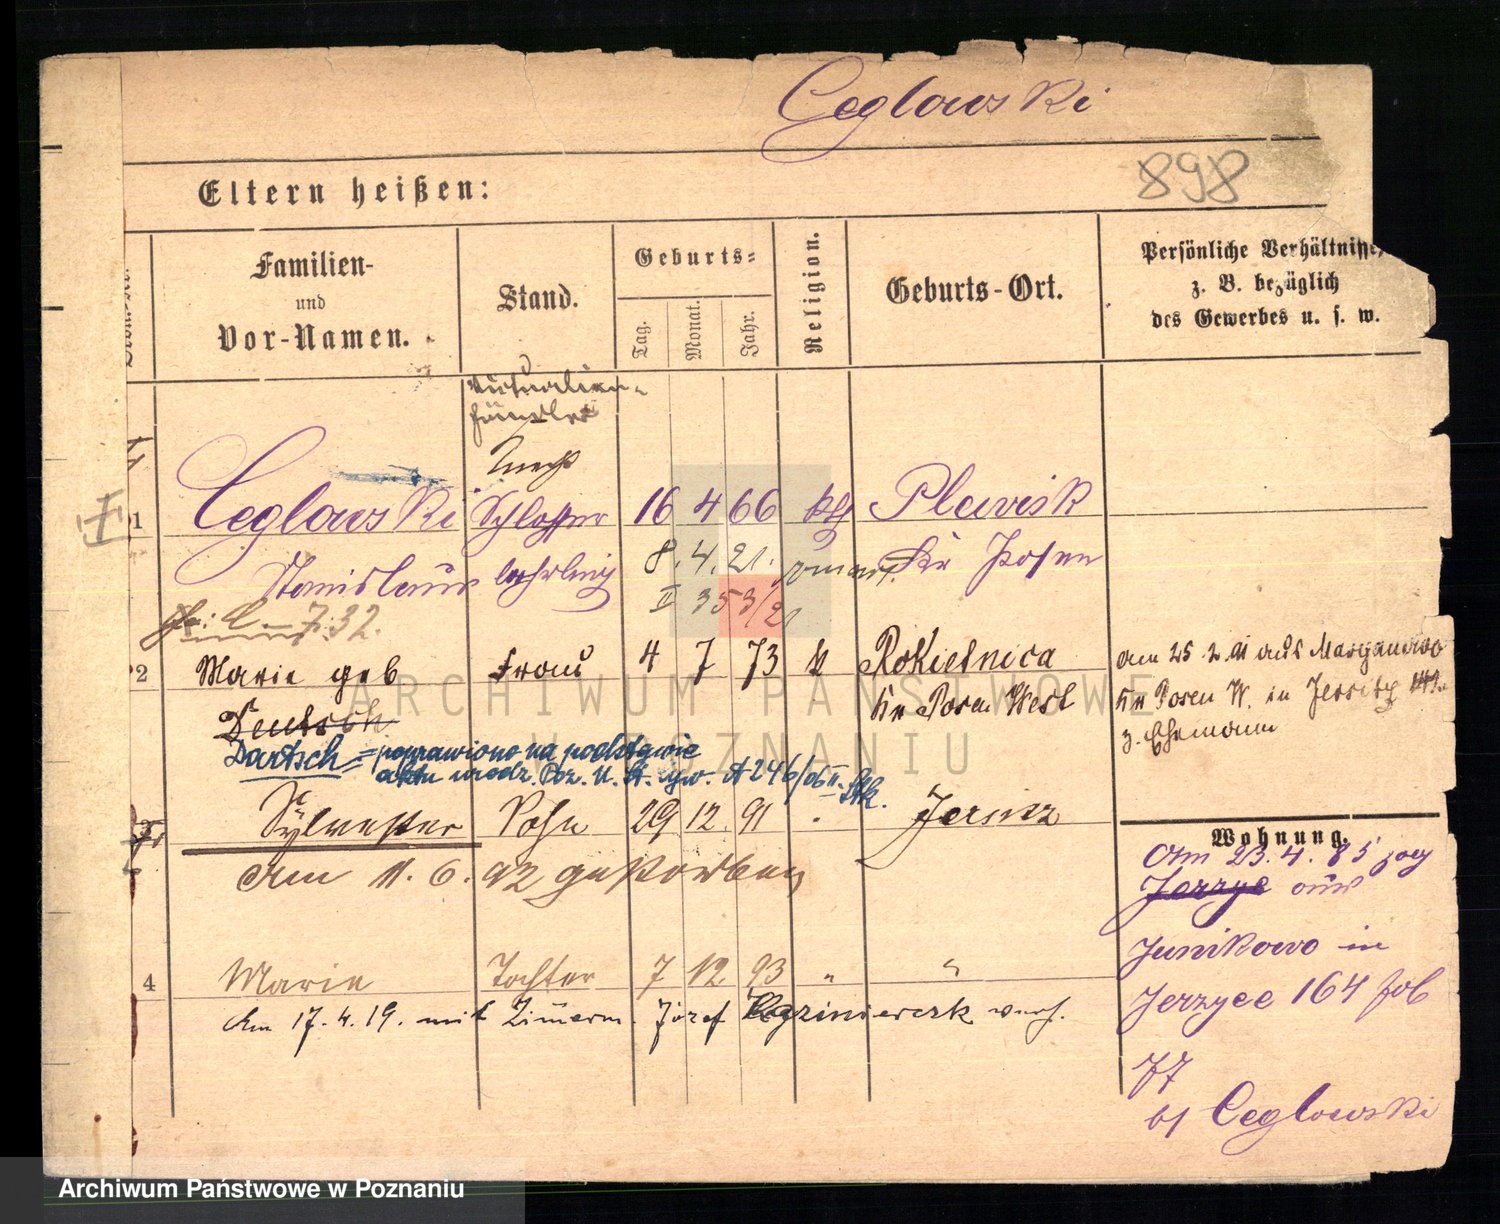 Ceglowski
898
Eltern heißen:
Familien-
und
Vor-Namen.
Stand.
Geburts-
Tag.
Monat.
Jahr.
Religion.
Geburts-Ort.
Persönliche Verhältnisse,
z. B. bezüglich
des Gewerbes u. s. w.
Victualien-
händler
1 Ceglowski Schlosser 16 4 66 kth Plewisk
Stanislaus lehrling 8. 4. 21. Kr Posen
II 353/21
7.32.
2 Marie geb Frau 4 7 73 k Rokietnica
Deutsch Kr Posen West
Dartsch = poprawiono na podstawie
aktu urodz. Poz. U. St. A 246/06 II.
am 25 2 91 aus
Kr Posen W. in Jersitz
z. Ehemann
Sylvester Sohn 29 12 91 Jersitz
am 11. 6. 92 gestorben
4 Marie Tochter 7 12 93 " "
Am 17. 4. 19. mit Zimerm. Józef verh.
Wohnung.
Am 23. 4. 85 zog
Jerzyce aus
Junikowo in
Jerzyce 164
77
bei Ceglowski
ARCHIWUM PAŃSTWOWE
W POZNANIU
Archiwum Państwowe w Poznaniu